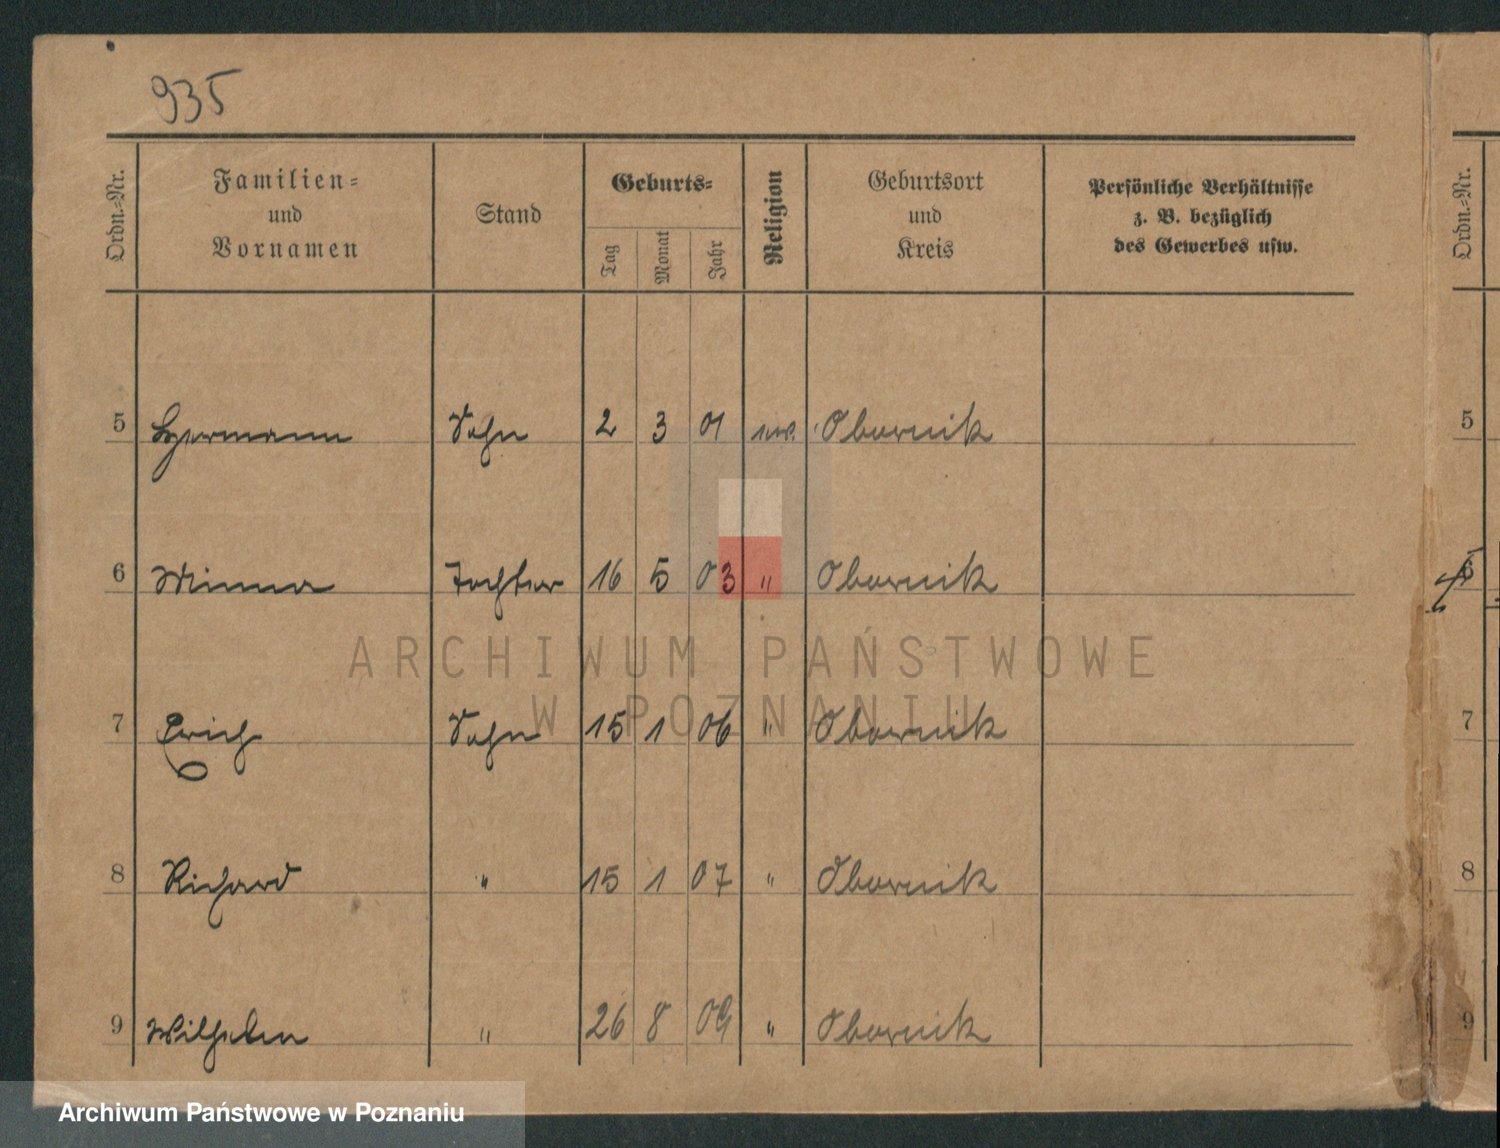 935
Ordn.-Nr.
Familien-
und
Vornamen
Stand
Geburts-
Tag
Monat
Jahr
Religion
Geburtsort
und
Kreis
Persönliche Verhältnisse
z. B. bezüglich
des Gewerbes usw.
Ordn.-Nr.
5 Hermann Sohn 2 3 01 Obornik 5
6 Minna Tochter 16 5 03 " Obornik 6
ARCHIWUM PAŃSTWOWE
W POZNANIU
7 Erich Sohn 15 1 06 " Obornik 7
8 Richard " 15 1 07 " Obornik 8
9 Wilhelm " 26 8 09 " Obornik 9
Archiwum Państwowe w Poznaniu